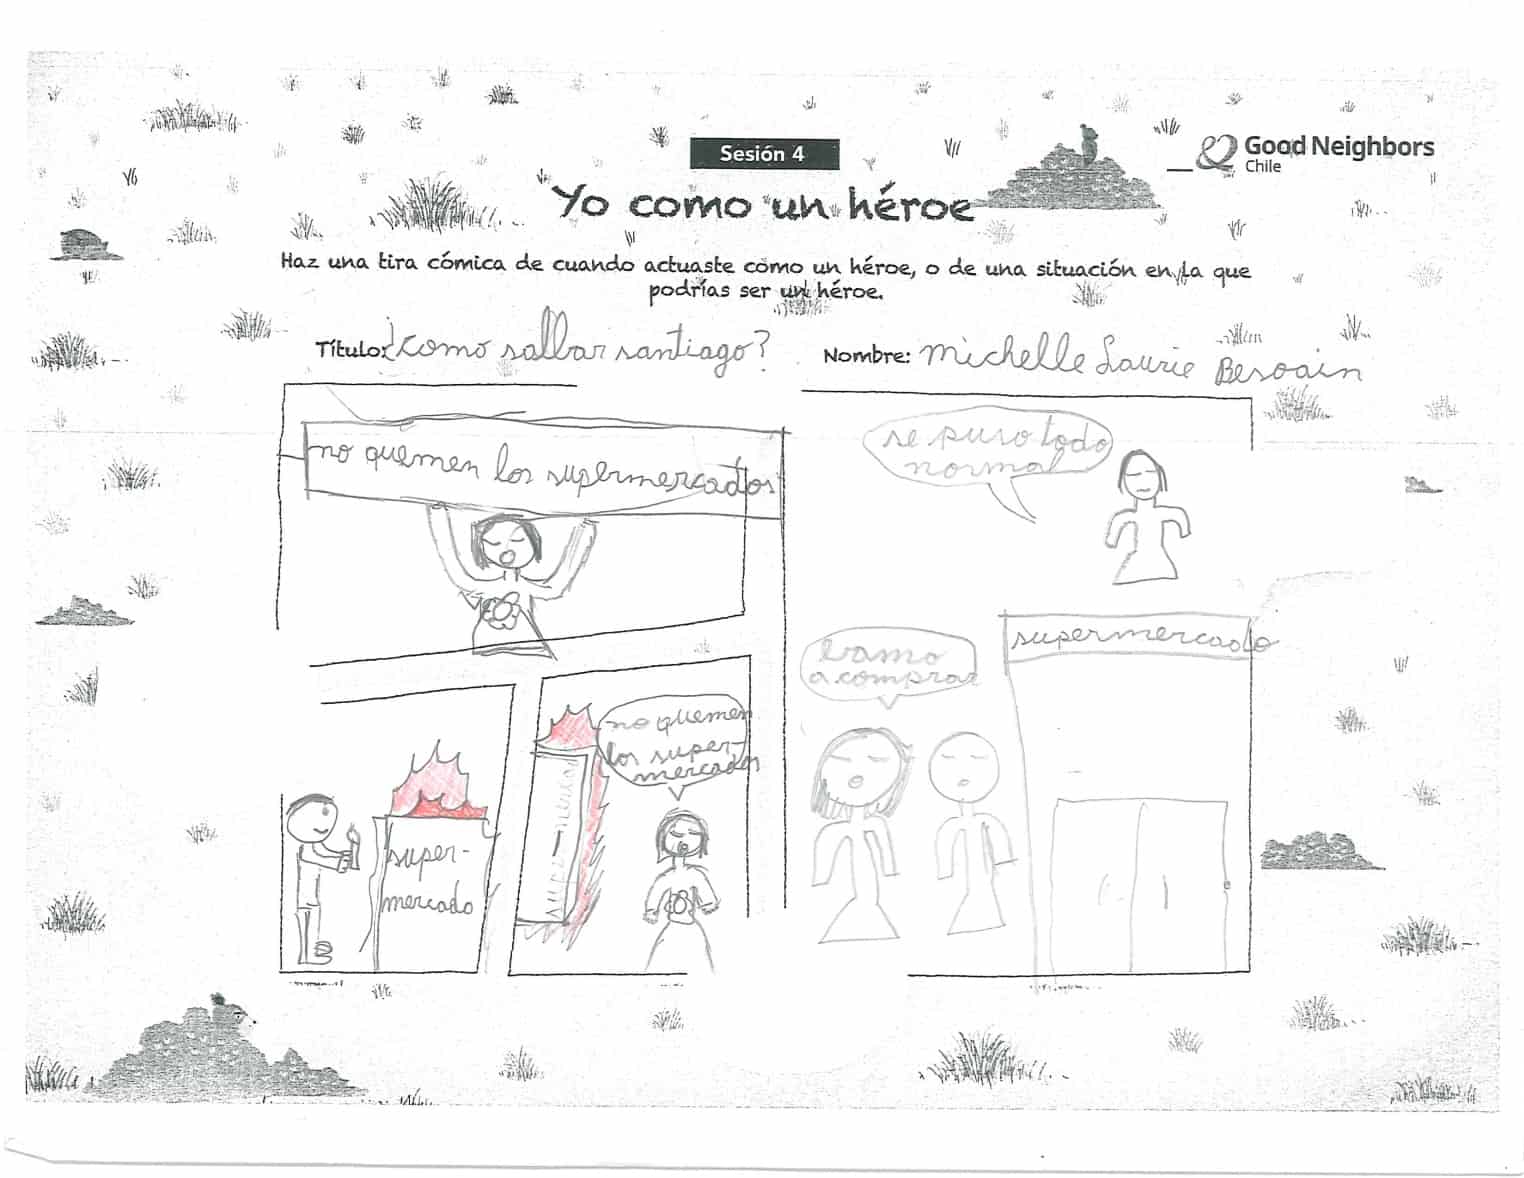 Sesión 4
Good Neighbors
Chile
Yo como un héroe
Haz una tira cómica de cuando actuaste como un héroe, o de una situación en la que
podrías ser un héroe.
Título: ¿como sallbar santiago?
Nombre: Michelle Laurie Besoain
no quemen los supermercados
se puso todo
normal
super-
mercado
no quemen
los super-
mercados
super-mercado
bamo
a comprar
supermercado